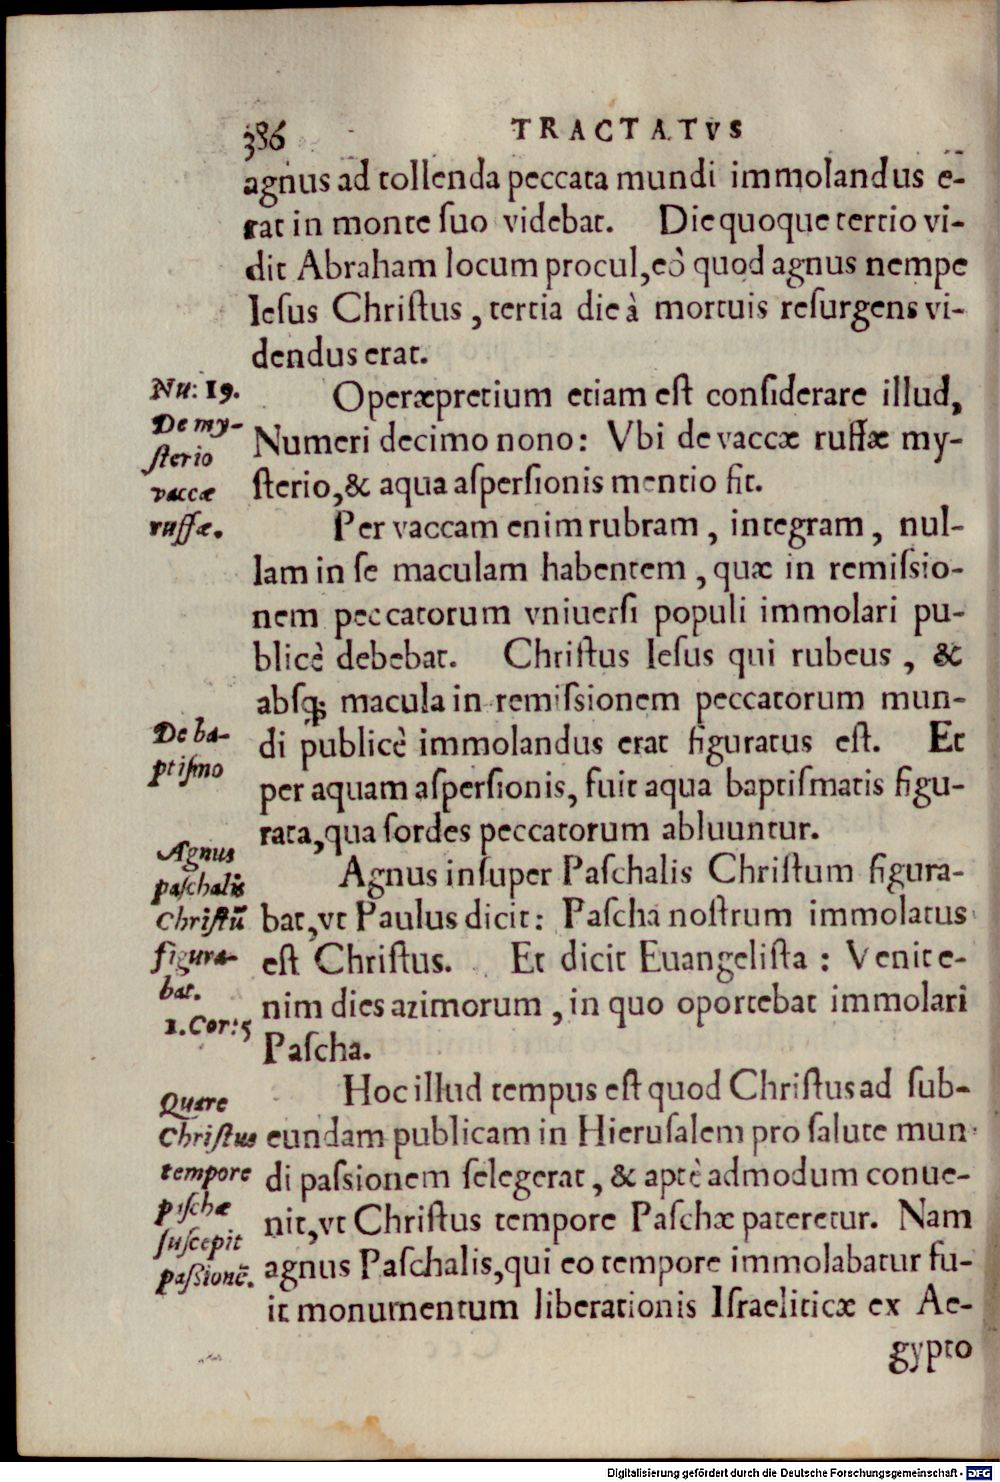 386 TRACTATVS
agnus ad tollenda peccata mundi immolandus e-
rat in monte suo videbat. Die quoque tertio vi-
dit Abraham locum procul, eò quod agnus nempe
Iesus Christus, tertia die à mortuis resurgens vi-
dendus erat.
Nu: 19.
De my-
sterio
vaccæ
ruffæ.
Operæpretium etiam est considerare illud,
Numeri decimo nono: Vbi de vaccæ ruffæ my-
sterio, & aqua aspersionis mentio fit.
Per vaccam enim rubram, integram, nul-
lam in se maculam habentem, quæ in remissio-
nem peccatorum vniuersi populi immolari pu-
blicè debebat. Christus Iesus qui rubeus, &
absq; macula in remissionem peccatorum mun-
di publicè immolandus erat figuratus est. Et
per aquam aspersionis, fuit aqua baptismatis figu-
rata, qua sordes peccatorum abluuntur.
De ba-
ptismo
Agnus
paschalis
Christū
figura-
bat.
1. Cor: 5
Agnus insuper Paschalis Christum figura-
bat, vt Paulus dicit: Pascha nostrum immolatus
est Christus. Et dicit Euangelista: Venit e-
nim dies azimorum, in quo oportebat immolari
Pascha.
Quare
Christus
tempore
paschæ
suscepit
passionē.
Hoc illud tempus est quod Christus ad sub-
eundam publicam in Hierusalem pro salute mun-
di passionem selegerat, & aptè admodum conue-
nit, vt Christus tempore Paschæ pateretur. Nam
agnus Paschalis, qui eo tempore immolabatur fu-
it monumentum liberationis Israeliticæ ex Ae-
gypto
Digitalisierung gefördert durch die Deutsche Forschungsgemeinschaft - DFG